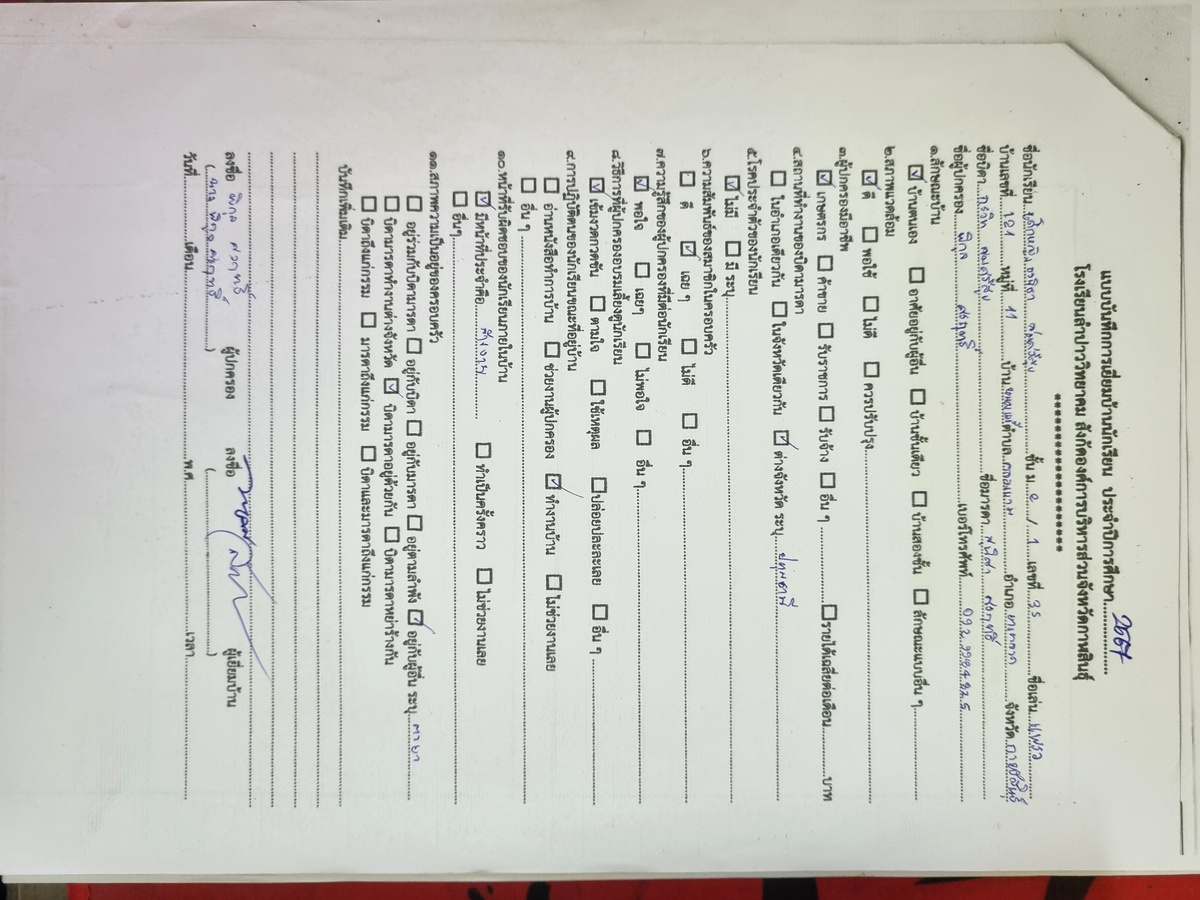 แบบบันทึกการเยี่ยมบ้านนักเรียน ประจำปีการศึกษา 2567
โรงเรียนลำปาววิทยาคม สังกัดองค์การบริหารส่วนจังหวัดกาฬสินธุ์
********************
ชื่อนักเรียน เด็กหญิง ชั้น ม. ๑ / 1 เลขที่ 35 ชื่อเล่น แพรว
บ้านเลขที่ 121 หมู่ที่ 11 บ้าน ตำบล อำเภอ จังหวัด กาฬสินธุ์
ชื่อบิดา ชื่อมารดา
ชื่อผู้ปกครอง พิกุล เบอร์โทรศัพท์
๑.ลักษณะบ้าน
☑ บ้านตนเอง ☐ อาศัยอยู่กับผู้อื่น ☐ บ้านชั้นเดียว ☐ บ้านสองชั้น ☐ ลักษณะแบบอื่น ๆ
๒.สภาพแวดล้อม
☑ ดี ☐ พอใช้ ☐ ไม่ดี ☐ ควรปรับปรุง
๓.ผู้ปกครองมีอาชีพ
☑ เกษตรกร ☐ ค้าขาย ☐ รับราชการ ☐ รับจ้าง ☐ อื่น ๆ ☐ รายได้เฉลี่ยต่อเดือน บาท
๔.สถานที่ทำงานของบิดามารดา
☐ ในอำเภอเดียวกัน ☐ ในจังหวัดเดียวกัน ☑ ต่างจังหวัด ระบุ ปทุมธานี
๕.โรคประจำตัวของนักเรียน
☑ ไม่มี ☐ มี ระบุ
๖.ความสัมพันธ์ของสมาชิกในครอบครัว
☐ ดี ☑ เฉย ๆ ☐ ไม่ดี ☐ อื่น ๆ
๗.ความรู้สึกของผู้ปกครองที่มีต่อนักเรียน
☑ พอใจ ☐ เฉยๆ ☐ ไม่พอใจ ☐ อื่น ๆ
๘.วิธีการที่ผู้ปกครองอบรมเลี้ยงดูนักเรียน
☑ เข้มงวดกวดขัน ☐ ตามใจ ☐ ใช้เหตุผล ☐ ปล่อยปละละเลย ☐ อื่น ๆ
๙.การปฏิบัติตนของนักเรียนขณะที่อยู่บ้าน
☐ อ่านหนังสือทำการบ้าน ☐ ช่วยงานผู้ปกครอง ☑ ทำงานบ้าน ☐ ไม่ช่วยงานเลย
☐ อื่น ๆ
๑๐.หน้าที่รับผิดชอบของนักเรียนภายในบ้าน
☑ มีหน้าที่ประจำคือ ล้างจาน ☐ ทำเป็นครั้งคราว ☐ ไม่ช่วยงานเลย
☐ อื่นๆ
๑๑.สภาพความเป็นอยู่ของครอบครัว
☐ อยู่ร่วมกับบิดามารดา ☐ อยู่กับบิดา ☐ อยู่กับมารดา ☐ อยู่ตามลำพัง ☑ อยู่กับผู้อื่น ระบุ ตา ยา
☐ บิดามารดาทำงานต่างจังหวัด ☑ บิดามารดาอยู่ด้วยกัน ☐ บิดามารดาหย่าร้างกัน
☐ บิดาถึงแก่กรรม ☐ มารดาถึงแก่กรรม ☐ บิดาและมารดาถึงแก่กรรม
บันทึกเพิ่มเติม
ลงชื่อ พิกุล ผู้ปกครอง ลงชื่อ ผู้เยี่ยมบ้าน
( นาง พิกุล ) ( )
วันที่ เดือน พ.ศ. เวลา